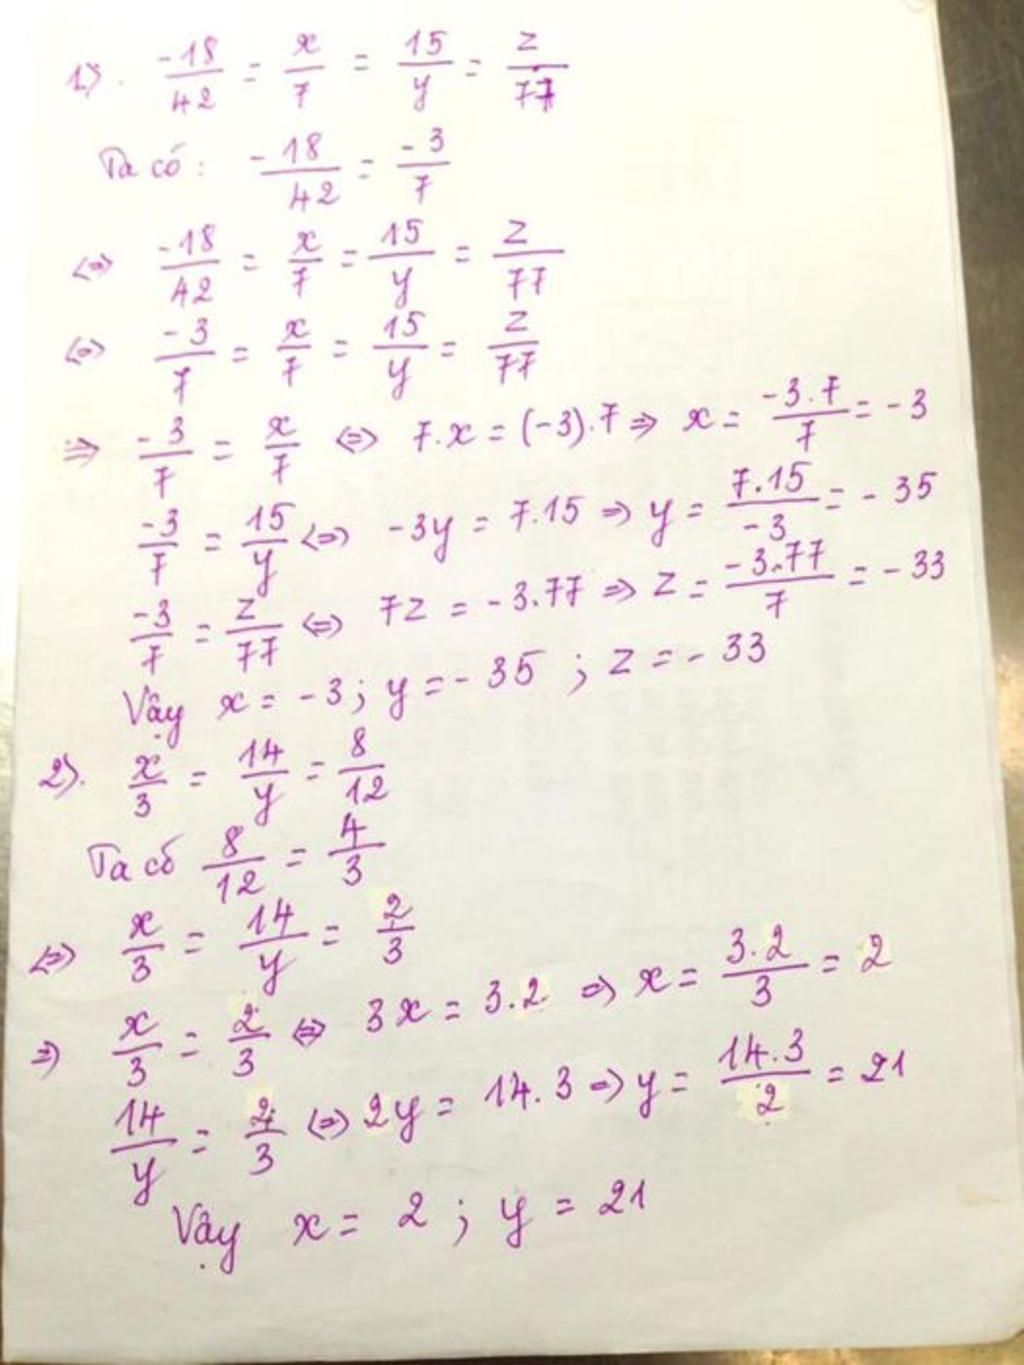 1). -18/42 = x/7 = 15/y = z/77
Ta có: -18/42 = -3/7
<=> -18/42 = x/7 = 15/y = z/77
<=> -3/7 = x/7 = 15/y = z/77
=> -3/7 = x/7 <=> 7.x = (-3).7 => x = -3.7/7 = -3
-3/7 = 15/y <=> -3y = 7.15 => y = 7.15/-3 = -35
-3/7 = z/77 <=> 7z = -3.77 => z = -3.77/7 = -33
Vậy x = -3; y = -35; z = -33
2). x/3 = 14/y = 8/12
Ta có 8/12 = 4/3
<=> x/3 = 14/y = 2/3
=> x/3 = 2/3 <=> 3x = 3.2 => x = 3.2/3 = 2
14/y = 2/3 <=> 2y = 14.3 => y = 14.3/2 = 21
Vậy x = 2; y = 21